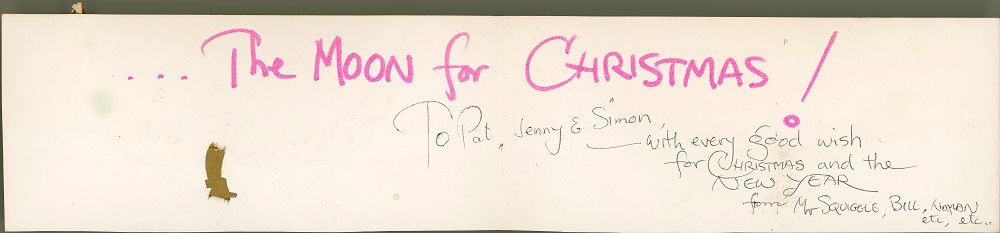 ... The MOON for CHRISTMAS!
To Pat, Jenny & Simon,
with every good wish
for CHRISTMAS and the
NEW YEAR
from Mr SQUIGGLE, BILL, NORMAN
etc, etc..